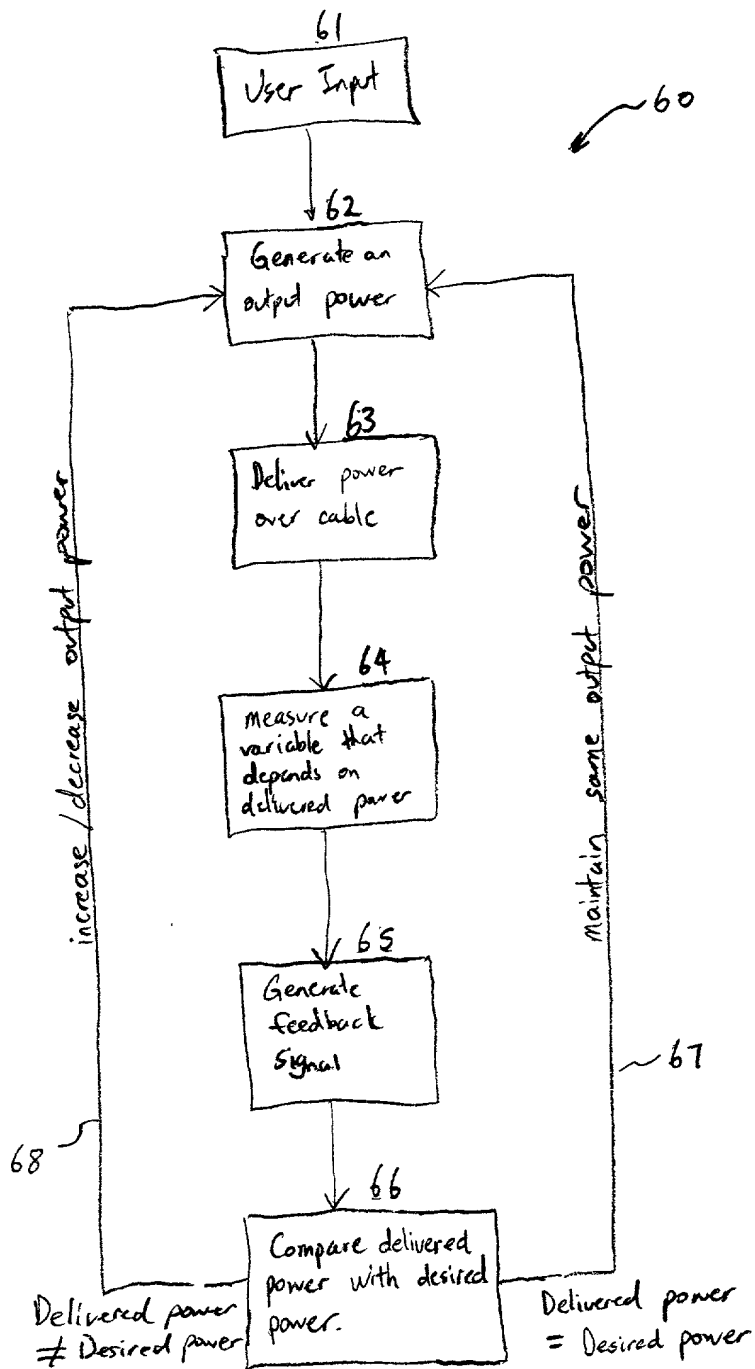 61
User Input
60
62
Generate an
output power
63
Deliver power
over cable
64
measure a
variable that
depends on
delivered power
65
Generate
feedback
signal
66
Compare delivered
power with desired
power.
increase / decrease output power
maintain same output power
67
68
Delivered power
≠ Desired power
Delivered power
= Desired power